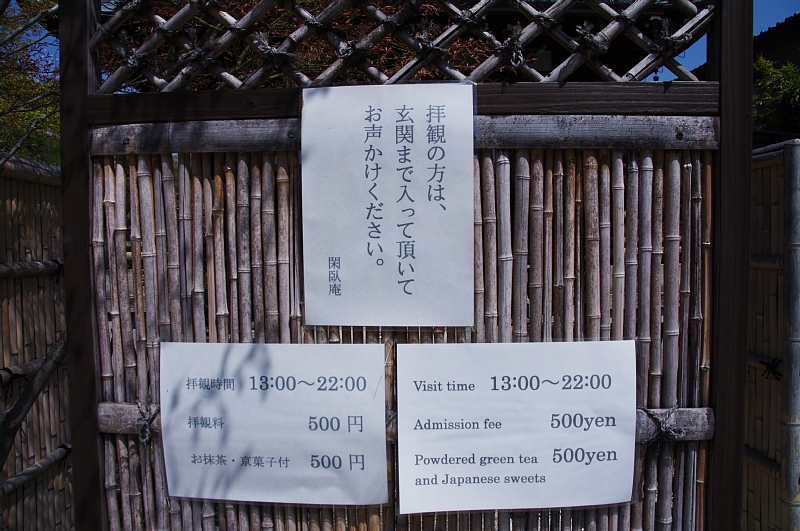 拝観の方は、
玄関まで入って頂いて
お声かけください。
閑臥庵
拝観時間 13:00〜22:00
拝観料 500 円
お抹茶・京菓子付 500 円
Visit time 13:00〜22:00
Admission fee 500yen
Powdered green tea 500yen
and Japanese sweets